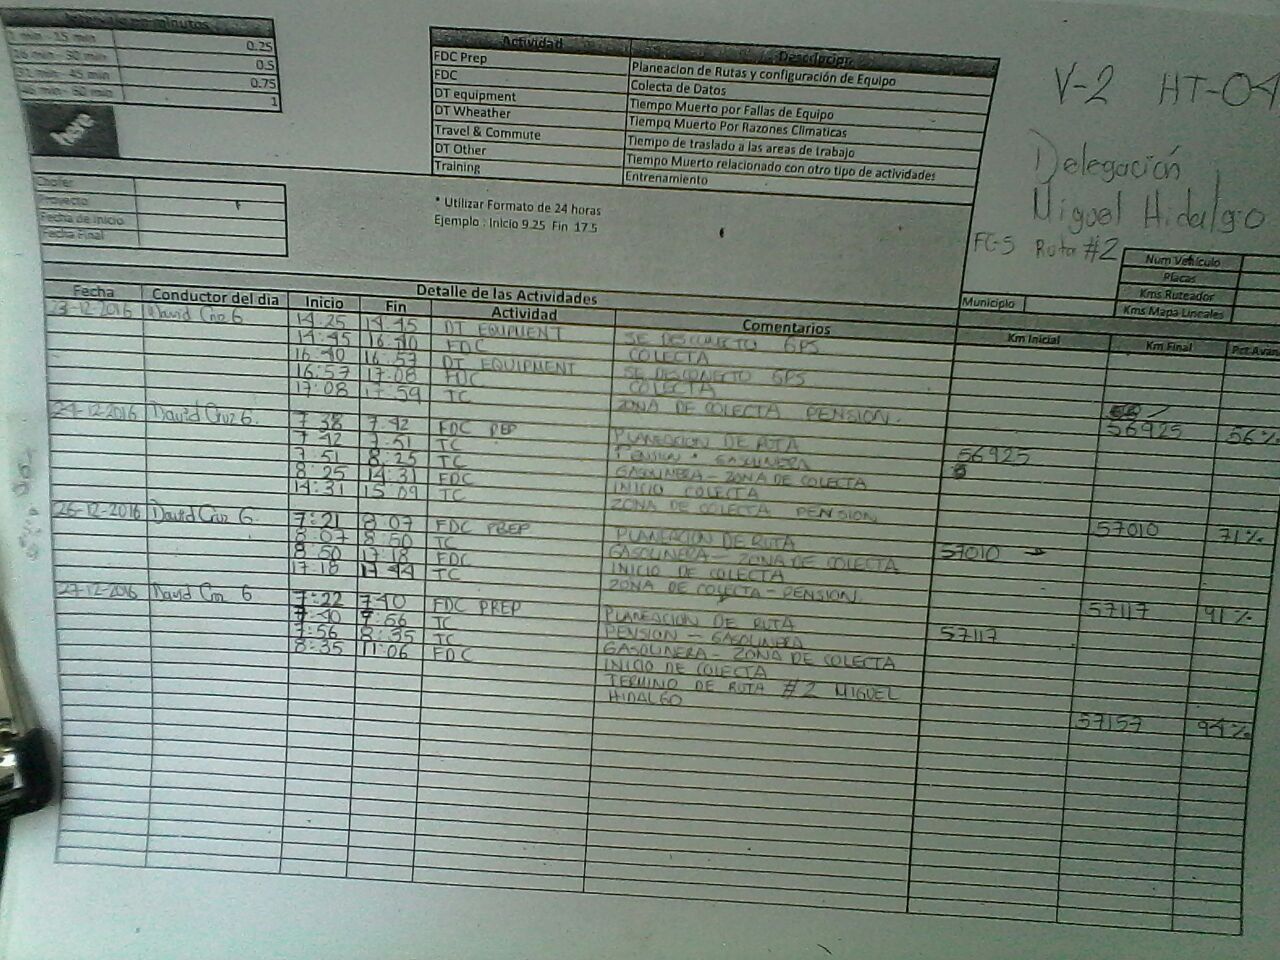 Intervalo en minutos
1 min - 15 min 0.25
16 min - 30 min 0.5
31 min - 45 min 0.75
46 min - 60 min 1
here
Actividad Descripcion
FDC Prep Planeacion de Rutas y configuración de Equipo
FDC Colecta de Datos
DT equipment Tiempo Muerto por Fallas de Equipo
DT Wheather Tiempo Muerto Por Razones Climaticas
Travel & Commute Tiempo de traslado a las areas de trabajo
DT Other Tiempo Muerto relacionado con otro tipo de actividades
Training Entrenamiento
V-2 HT-04
Delegación
Miguel Hidalgo
FC-5 Ruta #2
Chofer
Proyecto
Fecha de inicio
Fecha Final
* Utilizar Formato de 24 horas
Ejemplo : Inicio 9.25 Fin 17.5
Num Vehículo
Placas
Kms Ruteador
Kms Mapa Lineales
Municipio
Detalle de las Actividades
Fecha Conductor del dia Inicio Fin Actividad Comentarios Km Inicial Km Final Pct Avan
23-12-2016 David Cruz G 14:25 14:45 DT EQUIPMENT SE DESCONECTO GPS
14:45 16:40 FDC COLECTA
16:40 16:57 DT EQUIPMENT SE DESCONECTO GPS
16:57 17:08 FDC COLECTA
17:08 17:59 TC ZONA DE COLECTA PENSION.
56925 56%
24-12-2016 David Cruz G. 7:38 7:42 FDC PEP PLANEACION DE RUTA
7:42 7:51 TC PENSION - GASOLINERA 56925
7:51 8:25 TC GASOLINERA - ZONA DE COLECTA
8:25 14:31 FDC INICIO COLECTA
14:31 15:09 TC ZONA DE COLECTA PENSION
57010 71%
26-12-2016 David Cruz G. 7:21 8:07 FDC PREP PLANEACION DE RUTA
8:07 8:50 TC GASOLINERA - ZONA DE COLECTA 57010
8:50 17:18 FDC INICIO DE COLECTA
17:18 17:44 TC ZONA DE COLECTA - PENSION.
57117 91%
27-12-2016 David Cruz G 7:22 7:40 FDC PREP PLANEACION DE RUTA
7:40 7:56 TC PENSION - GASOLINERA 57117
7:56 8:35 TC GASOLINERA - ZONA DE COLECTA
8:35 11:06 FDC INICIO DE COLECTA
TERMINO DE RUTA #2 MIGUEL
HIDALGO
57157 94%